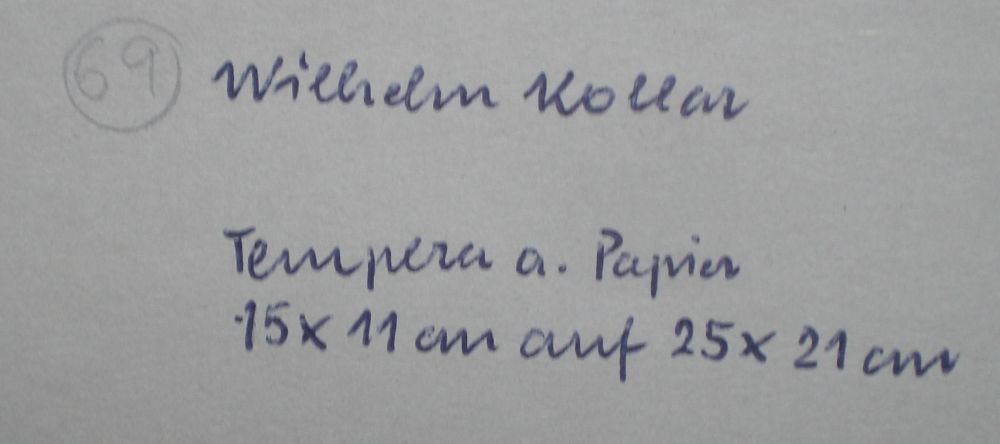 69 Wilhelm Kollar
Tempera a. Papier
15x11cm auf 25x21cm